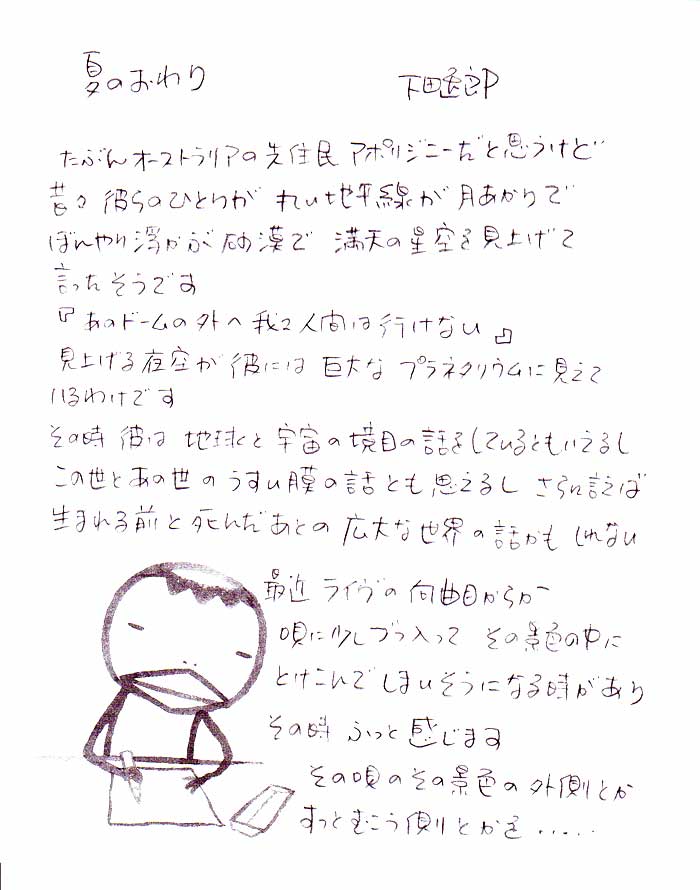 夏のおわり
下田逸郎
たぶんオーストラリアの先住民 アボリジニーだと思うけど
昔々 彼らのひとりが れいせ地平線が 月あかりで
ぼんやり浮かぶ 砂漠で 満天の星空を見上げて
言ったそうです
『あのドームの外へ我々人間は行けない』
見上げる夜空が 彼には 巨大な プラネタリウムに見えて
いるわけです
その時 彼は 地球と宇宙の境目の話をしているともいえるし
この世とあの世の うすい膜の話とも思えるし さらに言えば
生まれる前と死んだあとの 広大な世界の話かも しれない
最近 ライヴの 何曲目からか
唄に少しづつ入って その景色の中に
とけこんでしまいそうになる時があり
その時 ふっと 感じます
その唄のその景色の外側とか
ずっとむこう側とかを‥‥‥